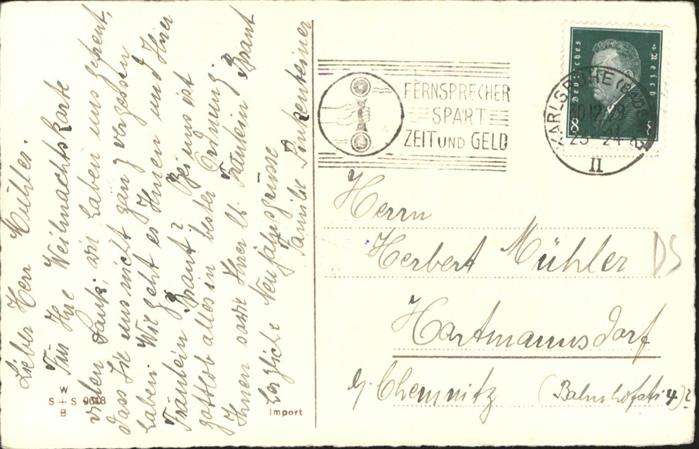 Lieber Herr Mühler.
Für Ihre Weihnachtskarte
vielen Dank; wir haben uns gefreut,
dass Sie uns nicht ganz vergessen
haben. Wie geht es Ihnen und Ihrer
Fräulein Braut? Bei uns ist
gottlob alles in bester Ordnung.
Ihnen sowie Ihrer lb. Fräulein Braut
herzliche Neujahrsgrüsse
Familie
W
S+S 9618
B
Import
FERNSPRECHER
SPART
ZEIT UND GELD
KARLSRUHE (BADEN)
23-24
II
Deutsches Reich
8 8
Herrn
Herbert Mühler
DS
Hartmannsdorf
b/ Chemnitz (Bahnhofstr 4)